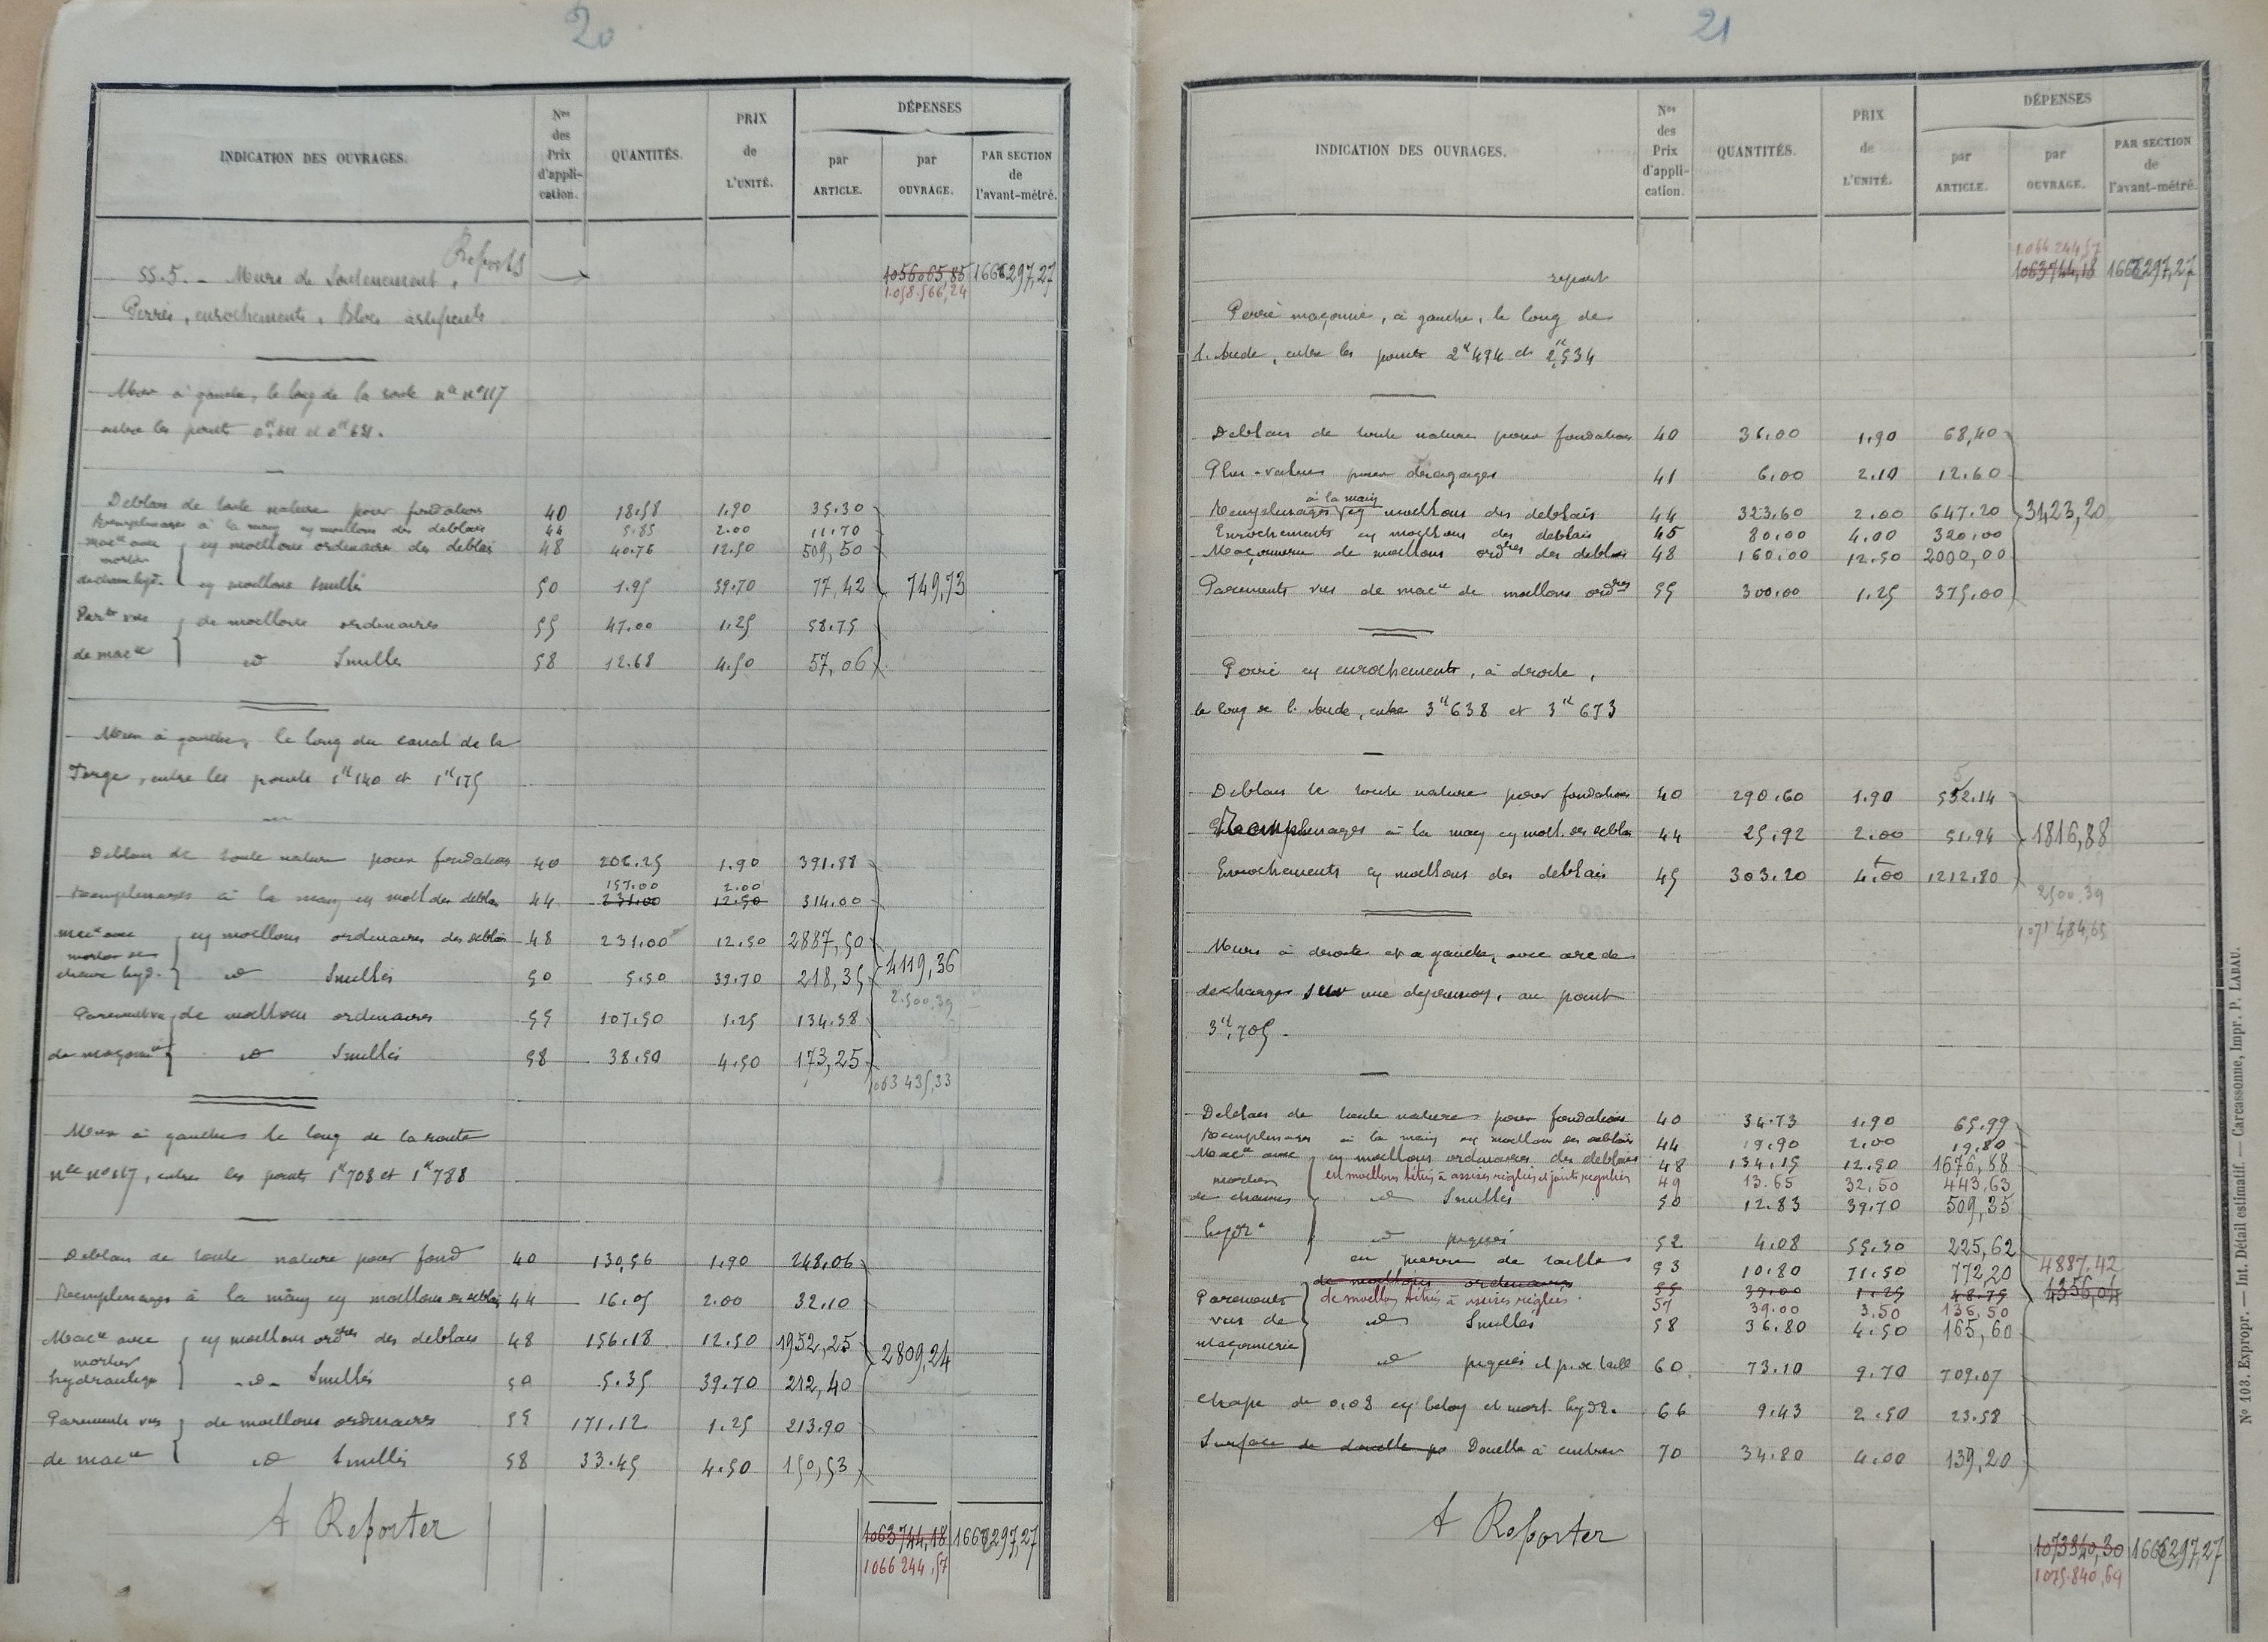 20
INDICATION DES OUVRAGES. Nos des Prix d'appli-cation. QUANTITÉS. PRIX de L'UNITÉ. DÉPENSES par ARTICLE. par OUVRAGE. PAR SECTION de l'avant-métré.
Reports
SS.5. - Murs de Soutenement, 1056065,85 1668297,27
1.058.566,24
Perrés, enrochements, Blocs artificiels
Mur à gauche, le long de la route nle n°117
entre les points 0K.611 et 0K631.
Deblais de toute nature pour fondations 40 18.58 1.90 35.30
Remplissages à la main en moellons des deblais 44 5.85 2.00 11.70
Macie avec mortier de chaux hyd. en moellons ordinaires des deblais 48 40.76 12.50 509,50
en moellons smillés 50 1.95 39.70 77,42 749,73
Parts vus de macie de moellons ordinaires 55 47.00 1.25 58.75
id Smillés 58 12.68 4.50 57,06
Mur à gauche, le long du canal de la
Forge, entre les points 1K140 et 1K175
Deblais de toute nature pour fondations 40 206.25 1.90 391.88
157.00 2.00
Remplissages à la main en moell des deblais 44 231.00 12.50 314.00
Macie avec mortier de chaux hyd. en moellons ordinaires des deblais 48 231.00 12.50 2887,50
id Smillés 50 5.50 39.70 218,35 4119,36
2.500,39
Parements vus de maçonie de moellons ordinaires 55 107.50 1.25 134.38
id Smillés 58 38.50 4.50 173,25
1063 435,33
Mur à gauche le long de la route
nle n°117, entre les points 1K708 et 1K788
Deblais de toute nature pour fond 40 130,56 1.90 248.06
Remplissages à la main en moellons des deblais 44 16.05 2.00 32.10
Macie avec mortier hydraulique en moellons ordres des deblais 48 156.18 12.50 1952,25 2809,24
-id- Smillés 50 5.35 39.70 212,40
Parements vus de macie de moellons ordinaires 55 171.12 1.25 213.90
id Smillés 58 33.45 4.50 150,53
A Reporter 1063744,18 1668297,27
1066244,57
21
INDICATION DES OUVRAGES. Nos des Prix d'appli-cation. QUANTITÉS. PRIX de L'UNITÉ. DÉPENSES par ARTICLE. par OUVRAGE. PAR SECTION de l'avant-métré.
1.066.244,57
report 1063744,18 1668297,27
Perré maçonné, à gauche, le long de
l'Aude, entre les points 2K474 et 2K534
Deblais de toute nature pour fondations 40 36.00 1.90 68,40
Plus-values pour dragages 41 6.00 2.10 12.60
à la main
Remplissages en moellons des deblais 44 323.60 2.00 647.20 3423,20
Enrochements en moellons des deblais 45 80.00 4.00 320.00
Maçonnerie de moellons ordres des deblais 48 160.00 12.50 2000,00
Parements vus de macie de moellons ordres 55 300.00 1.25 375.00
Perré en enrochements, à droite,
le long de l'Aude, entre 3K638 et 3K673
Deblais de toute nature pour fondations 40 290.60 1.90 552.14
Remplissages à la main en moell. des deblais 44 25.92 2.00 51.94 1816,88
Enrochements en moellons des deblais 45 303.20 4.00 1212.80
2500.39
1071 484,65
Murs à droite et à gauche, avec arc de
décharge sur une dépression, au point
3K.705 -
Deblais de toute nature pour fondations 40 34.73 1.90 65.99
Remplissages à la main en moellons des deblais 44 9.90 2.00 19.80
Macie avec mortier de chaux hydre en moellons ordinaires des deblais 48 134.15 12.50 1676,88
en moellons têtués à assises réglées et joints réguliers 49 13.65 32.50 443,63
id Smillés 50 12.83 39.70 509,35
id piqués 52 4.08 55.30 225,62
en pierre de taille 53 10.80 71.50 772,20 4887.42
Parements vus de maçonnerie de moellons ordinaires 55 39.00 1.25 48.75 4356,04
de moellons têtués à assises réglées 57 39.00 3.50 136,50
id Smillés 58 36.80 4.50 165,60
id piqués et p. de taille 60 73.10 9.70 709.07
Chape de 0.08 en beton et mort. hydr. 66 9.43 2.50 23.58
Surface de douelle po Douelle à cintrer 70 34.80 4.00 139,20
A Reporter 1073340,30 1668297,27
1075.840,69
N° 103. Expropr. — Int. Détail estimatif. — Carcassonne, Impr. P. LABAU.